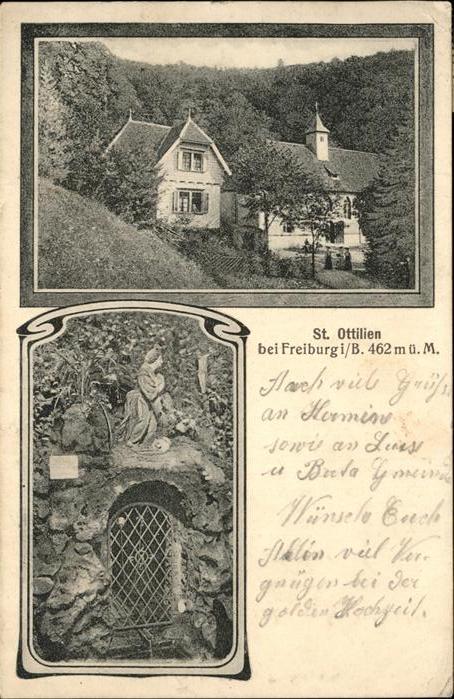 St. Ottilien
bei Freiburg i/B. 462 m ü. M.
Auch viele Grüße
an Hermine
sowie an Luis
u Berta
Wünsche Euch
Allen viel Ver-
gnügen bei der
golden Hochzeit.